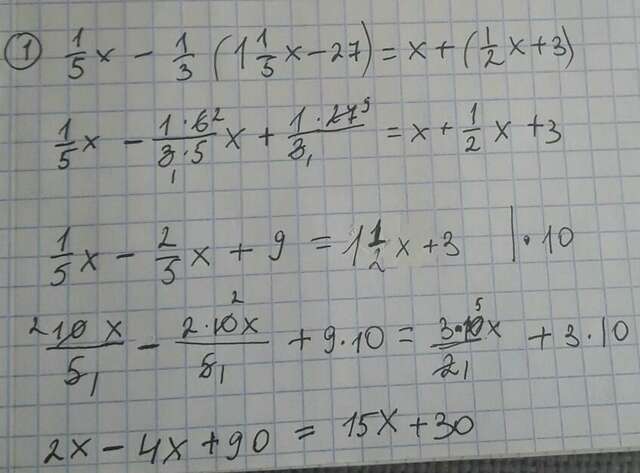 ① 1/5 x − 1/3 (1 1/5 x − 27) = x + (1/2 x + 3)
1/5 x − (1·6²)/(3₁·5) x + (1·27⁹)/3₁ = x + 1/2 x + 3
1/5 x − 2/5 x + 9 = 1 1/2 x + 3 |·10
²10 x/5₁ − 2·10² x/5₁ + 9·10 = 3·10⁵ x/2₁ + 3·10
2x − 4x + 90 = 15x + 30